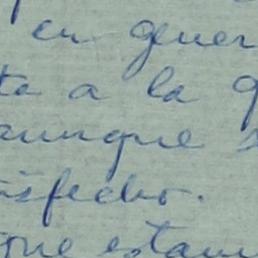 en gener
ta a la g
aunque s
isfecho.
que estam